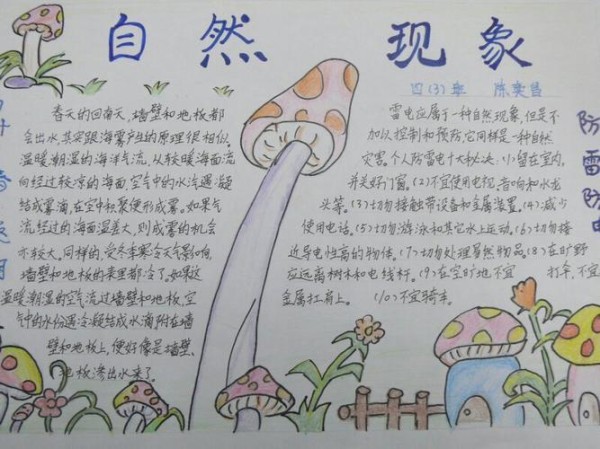 自然现象
四(3)班 陈奕昌
春天的回南天,墙壁和地板都
会出水,其实跟海雾产生的原理很相似。
温暖潮湿的海洋气流,从较暖海面流
向经过较凉的海面,空气中的水汽遇冷凝
结成雾滴,在空中积聚便形成雾。如果气
流经过的海面温差大,则成雾的机会
亦较大,同样的,受冬季寒冷天气影响,
墙壁和地板的表里都冷了。如果这
温暖潮湿的空气流过墙壁和地板,空
气中的水份遇冷凝结成水滴附在墙
壁和地板上,便好像是墙壁、
地板渗出水来了。
雷电应属于一种自然现象,但是不
加以控制和预防,它同样是一种自然
灾害。个人防雷电十大秘决:小留在室内,
并关好门窗。(2)不宜使用电视、音响和水龙
头等。(3)切勿接触带设备和金属装置。(4)减少
使用电话。(5)切勿游泳和其它水上运动。(6)切勿接
近导电性高的物体。(7)切勿处理易燃物品。(8)在旷野
应远离树木和电线杆。(9)在空旷地不宜打伞,不宜把
金属扛肩上。(10)不宜骑车。
防雷防电